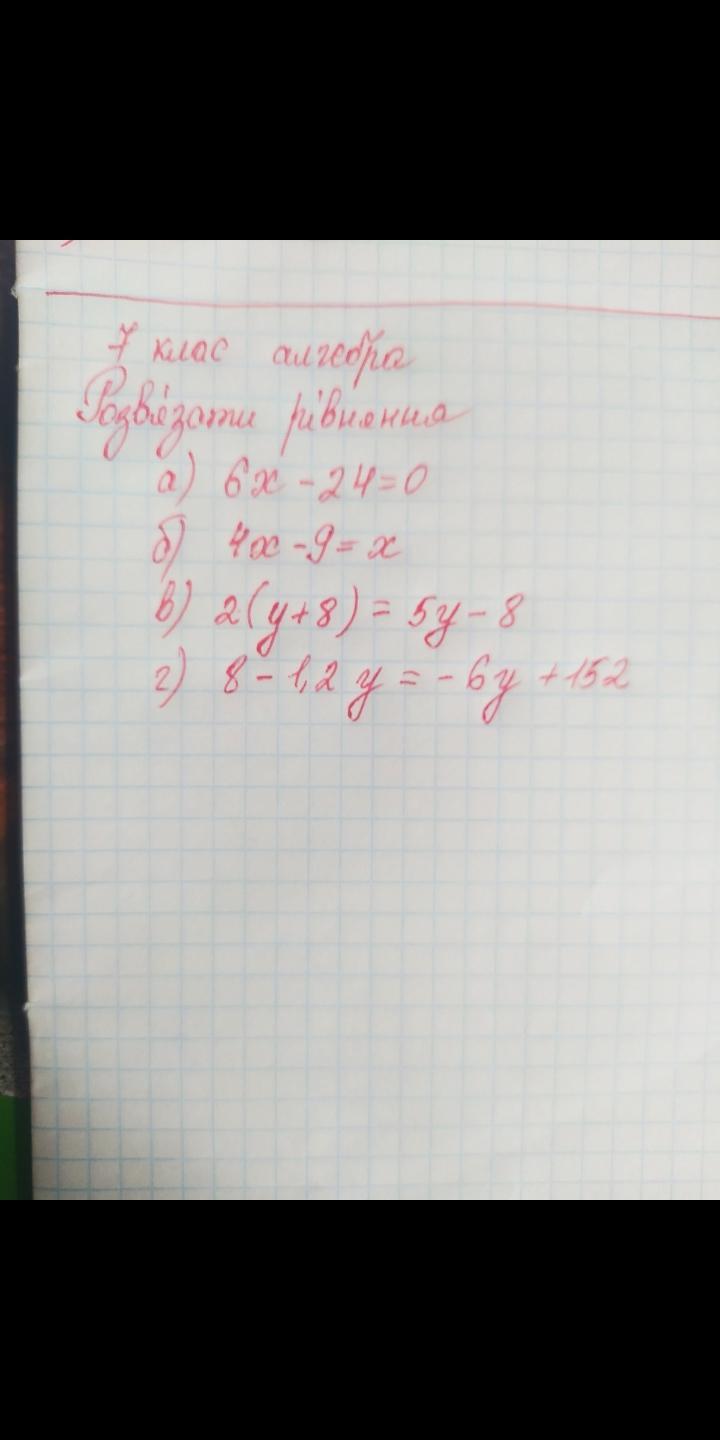 7 клас алгебра
Розв'язати рівняння
а) 6x - 24 = 0
б) 4x - 9 = x
в) 2(y + 8) = 5y - 8
г) 8 - 1,2 y = - 6y + 152